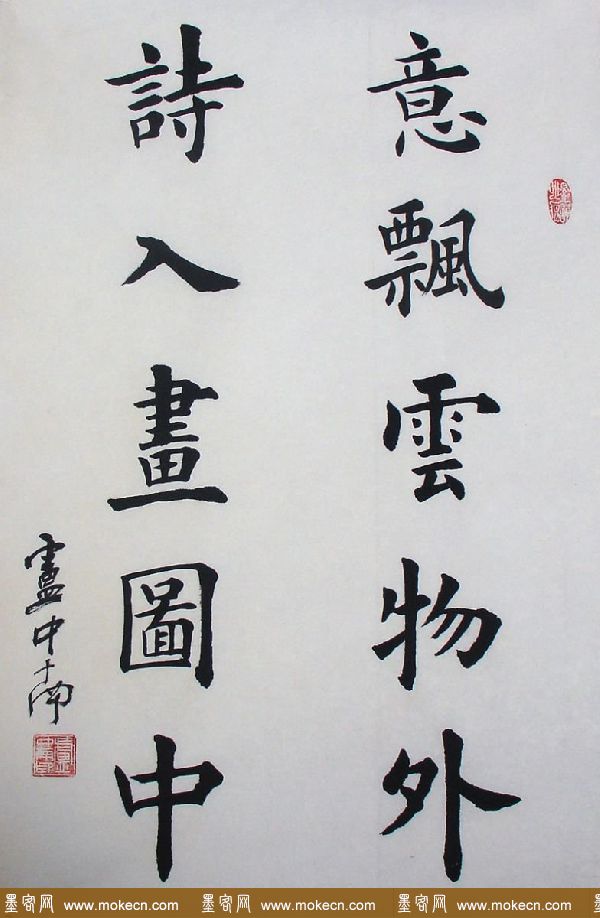 意飄雲物外
詩入畫圖中
盧中南
墨客网 www.mokecn.com 墨客网 www.mokecn.com 墨客网 www.mokecn.com